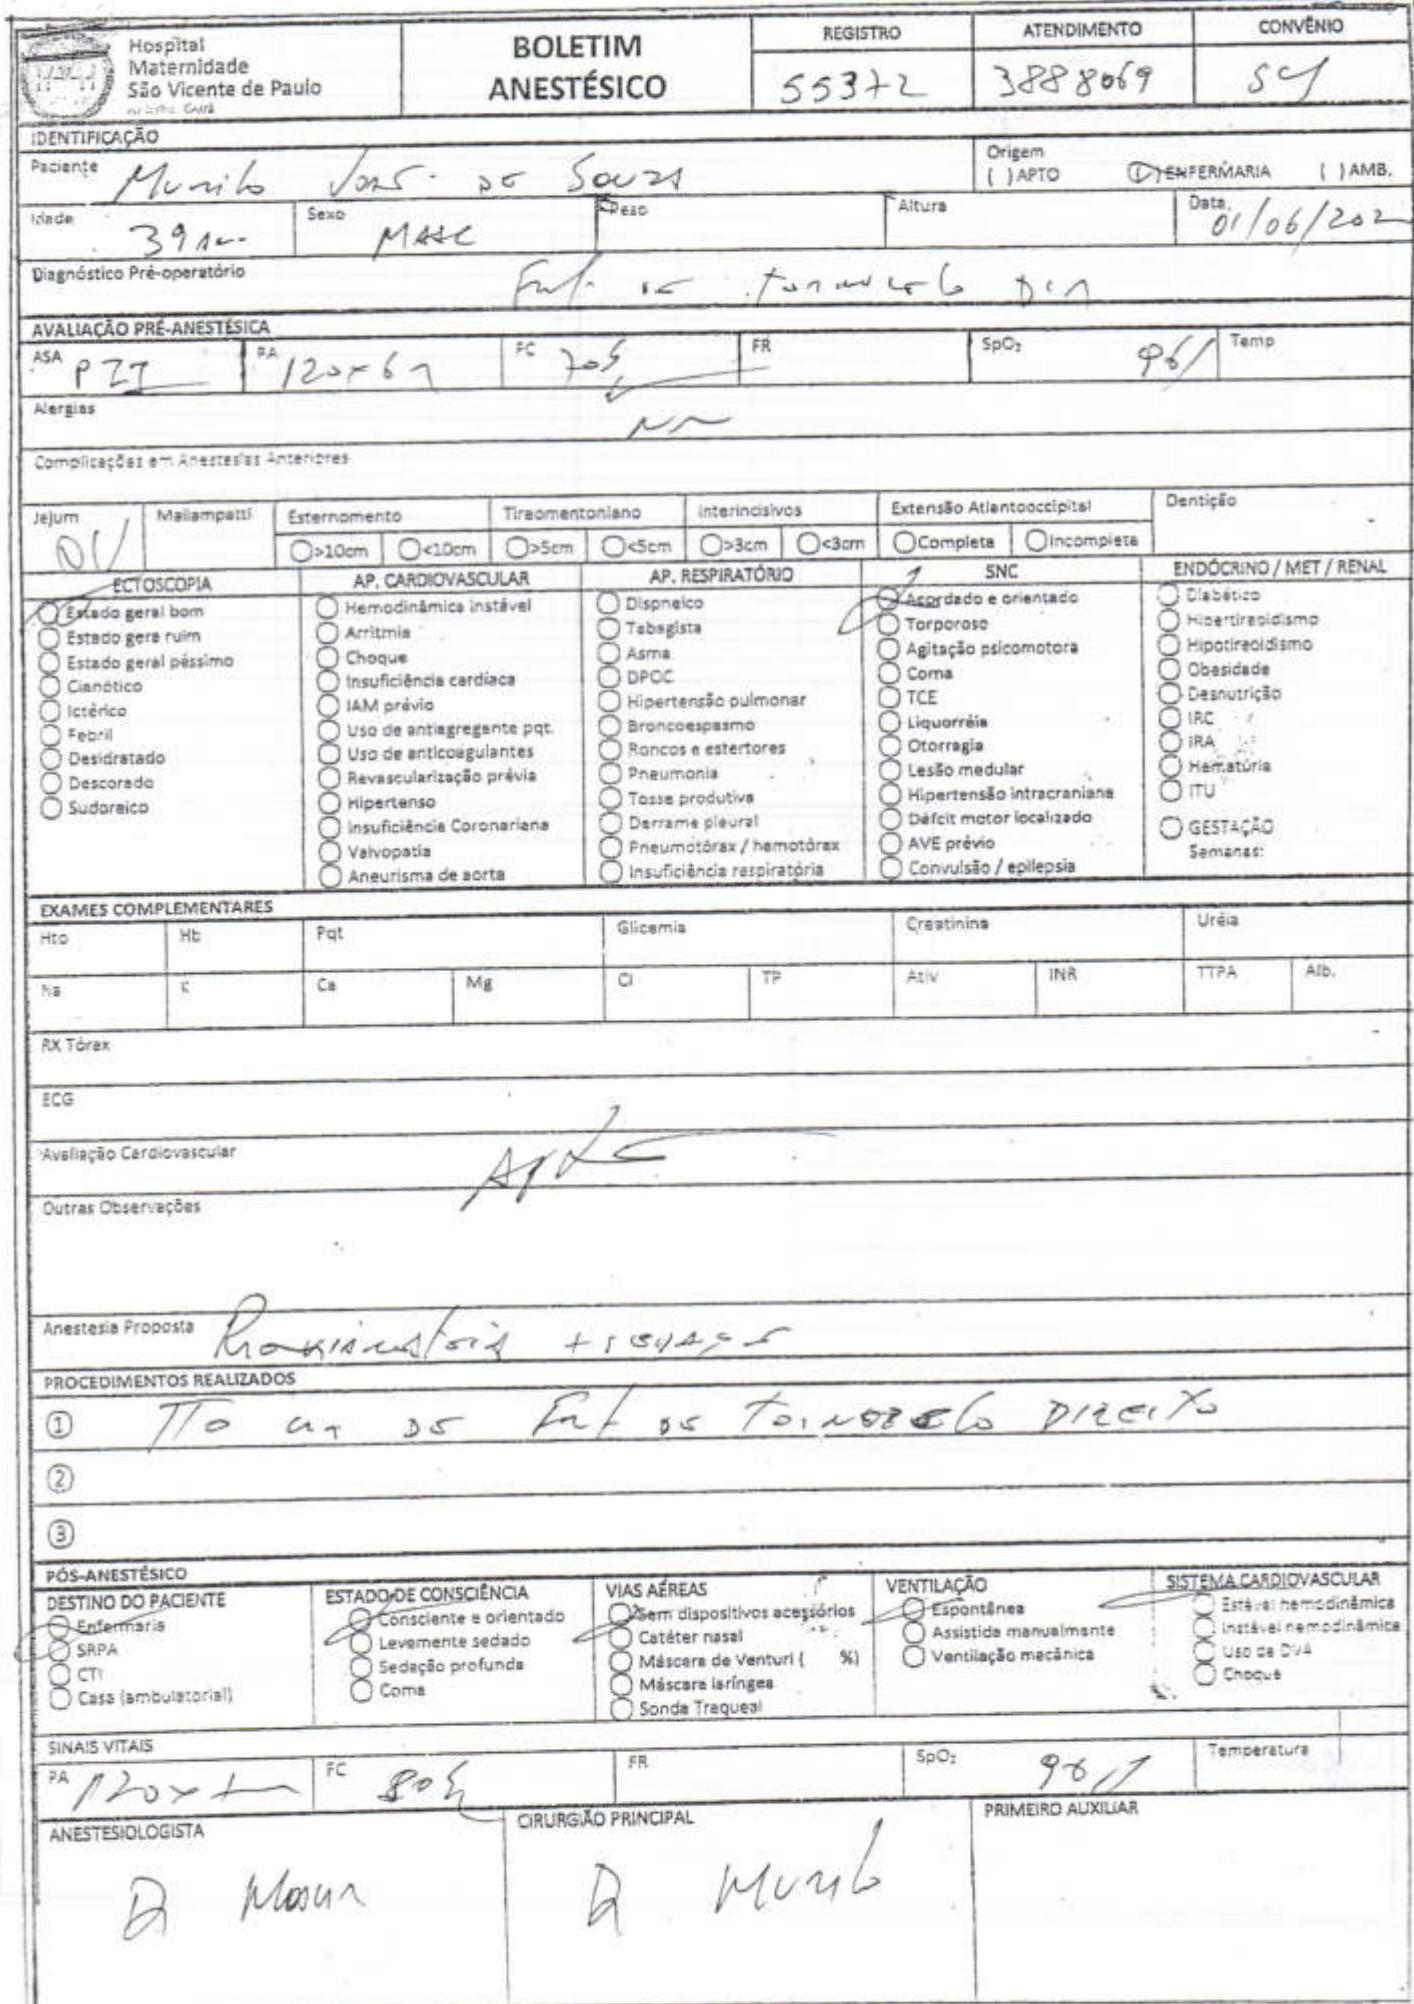 Hospital
Maternidade
São Vicente de Paulo
BOLETIM
ANESTÉSICO
REGISTRO
55372
ATENDIMENTO
3888069
CONVÊNIO
IDENTIFICAÇÃO
Paciente Murilo José de Souza
Origem
( ) APTO ( ) ENFERMARIA ( ) AMB.
Idade 39
Sexo MASC
Peso
Altura
Data 01/06/202
Diagnóstico Pré-operatório
AVALIAÇÃO PRÉ-ANESTÉSICA
ASA
PA 120x
FC
FR
SpO₂ 96
Temp
Alergias
Complicações em Anestesias Anteriores
Jejum
Mallampatti
Esternomento
Tireomentoniano
Interincisivos
Extensão Atlantooccipital
Dentição
>10cm <10cm >5cm <5cm >3cm <3cm Completa Incompleta
ECTOSCOPIA
Estado geral bom
Estado gera ruim
Estado geral péssimo
Cianótico
Ictérico
Febril
Desidratado
Descorado
Sudoreico
AP. CARDIOVASCULAR
Hemodinâmica instável
Arritmia
Choque
Insuficiência cardíaca
IAM prévio
Uso de antiagregante pqt.
Uso de anticoagulantes
Revascularização prévia
Hipertenso
Insuficiência Coronariana
Valvopatia
Aneurisma de aorta
AP. RESPIRATÓRIO
Dispneico
Tabagista
Asma
DPOC
Hipertensão pulmonar
Broncoespasmo
Roncos e estertores
Pneumonia
Tosse produtiva
Derrame pleural
Pneumotórax / hemotórax
Insuficiência respiratória
SNC
Acordado e orientado
Torporoso
Agitação psicomotora
Coma
TCE
Liquorréia
Otorragia
Lesão medular
Hipertensão intracraniana
Défcit motor localizado
AVE prévio
Convulsão / epilepsia
ENDÓCRINO / MET / RENAL
Diabético
Hipertireoidismo
Hipotireoidismo
Obesidade
Desnutrição
IRC
IRA
Hematúria
ITU
GESTAÇÃO
Semanas:
EXAMES COMPLEMENTARES
Hto Hb Pqt Glicemia Creatinina Uréia
Na K Ca Mg Cl TP Ativ INR TTPA Alb.
RX Tórax
ECG
Avaliação Cardiovascular
Outras Observações
Anestesia Proposta
PROCEDIMENTOS REALIZADOS
① TTO DE DE TORNOZELO DIREITO
②
③
PÓS-ANESTÉSICO
DESTINO DO PACIENTE
Enfermaria
SRPA
CTI
Casa (ambulatorial)
ESTADO DE CONSCIÊNCIA
Consciente e orientado
Levemente sedado
Sedação profunda
Coma
VIAS AÉREAS
Sem dispositivos acessórios
Catéter nasal
Máscara de Venturi ( %)
Máscara laríngea
Sonda Traqueal
VENTILAÇÃO
Espontânea
Assistida manualmente
Ventilação mecânica
SISTEMA CARDIOVASCULAR
Estável hemodinâmica
Instável hemodinâmica
Uso de DVA
Choque
SINAIS VITAIS
PA 120x
FC 80
FR
SpO₂ 96
Temperatura
ANESTESIOLOGISTA
CIRURGIÃO PRINCIPAL
Murilo
PRIMEIRO AUXILIAR